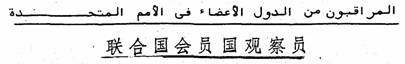 المراقبون من الدول الأعضاء فى الأمم المتحدة
联合国会员国观察员